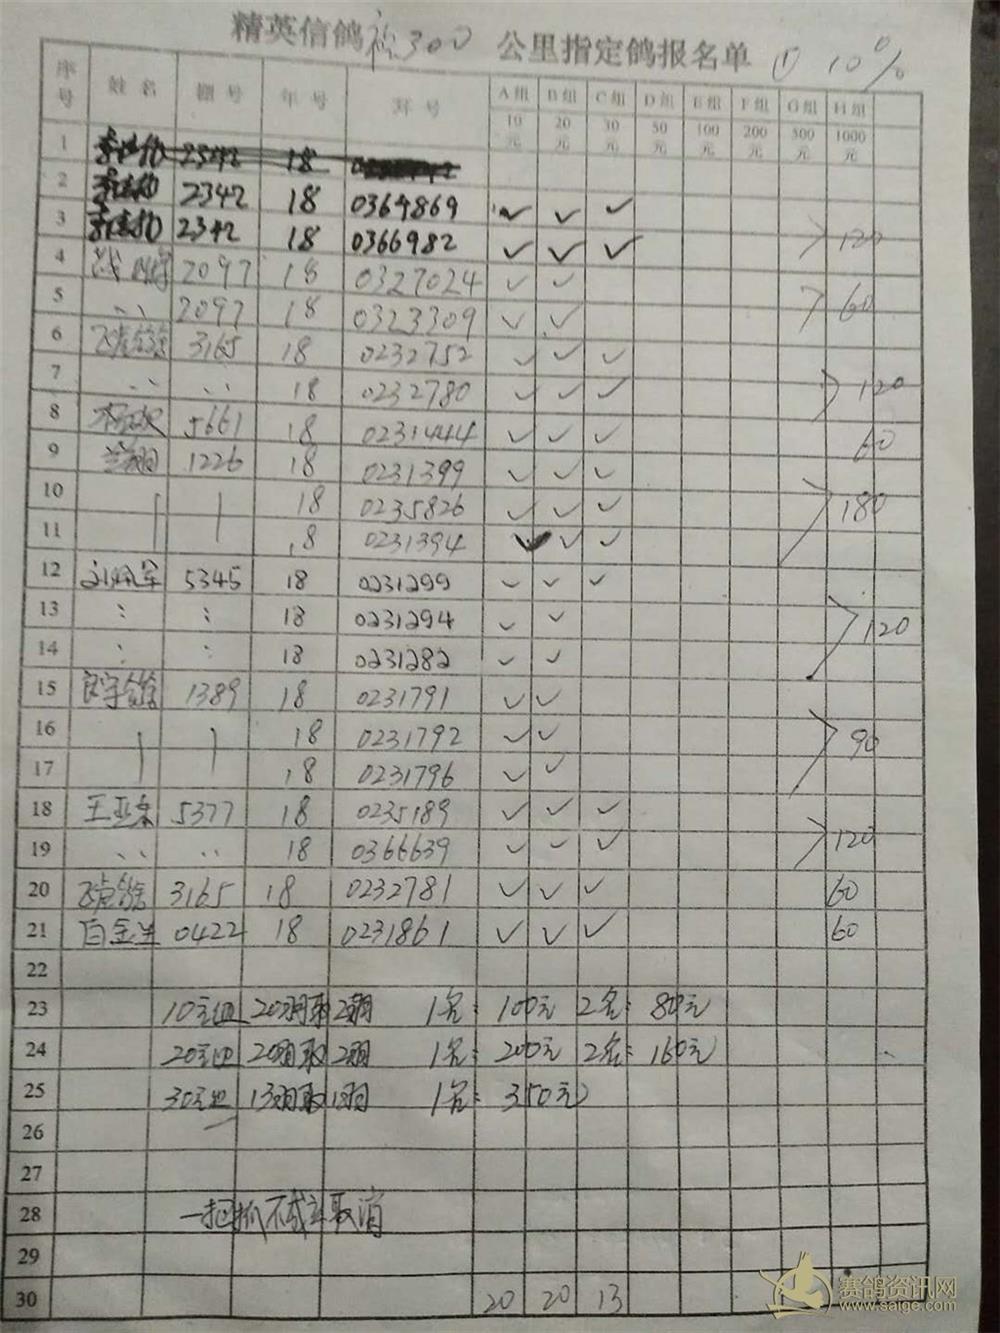 精英信鸽 300 公里指定鸽报名单 ① 10%
序号 姓名 棚号 年号 环号 A组 B组 C组 D组 E组 F组 G组 H组
10元 20元 30元 50元 100元 200元 500元 1000元
1 2342 18
2 2342 18 0364869 ✓ ✓ ✓
3 2342 18 0366982 ✓ ✓ ✓ 120
4 2097 18 0327024 ✓ ✓
5 〃 2097 18 0323309 ✓ ✓ 60
6 3165 18 0232752 ✓ ✓ ✓
7 〃 〃 18 0232780 ✓ ✓ ✓ 120
8 5661 18 0231444 ✓ ✓ ✓ 60
9 1226 18 0231399 ✓ ✓ ✓
10 18 0235826 ✓ ✓ ✓ 180
11 18 0231394 ✓ ✓ ✓
12 5345 18 0231299 ✓ ✓ ✓
13 : : 18 0231294 ✓ ✓ 120
14 : : 18 0231282 ✓ ✓
15 1389 18 0231791 ✓ ✓
16 18 0231792 ✓ ✓ 90
17 18 0231796 ✓ ✓
18 王亚东 5377 18 0235189 ✓ ✓ ✓
19 〃 〃 18 0366639 ✓ ✓ ✓ 120
20 3165 18 0232781 ✓ ✓ ✓ 60
21 白金 0422 18 0231861 ✓ ✓ ✓ 60
22
23 10元组 20羽取2羽 1名: 100元 2名: 80元
24 20元组 20羽取2羽 1名: 200元 2名: 160元
25 30元组 13羽取1羽 1名: 350元
26
27
28 一把抓不成立取消
29
30 20 20 13
赛鸽资讯网
www.saige.com